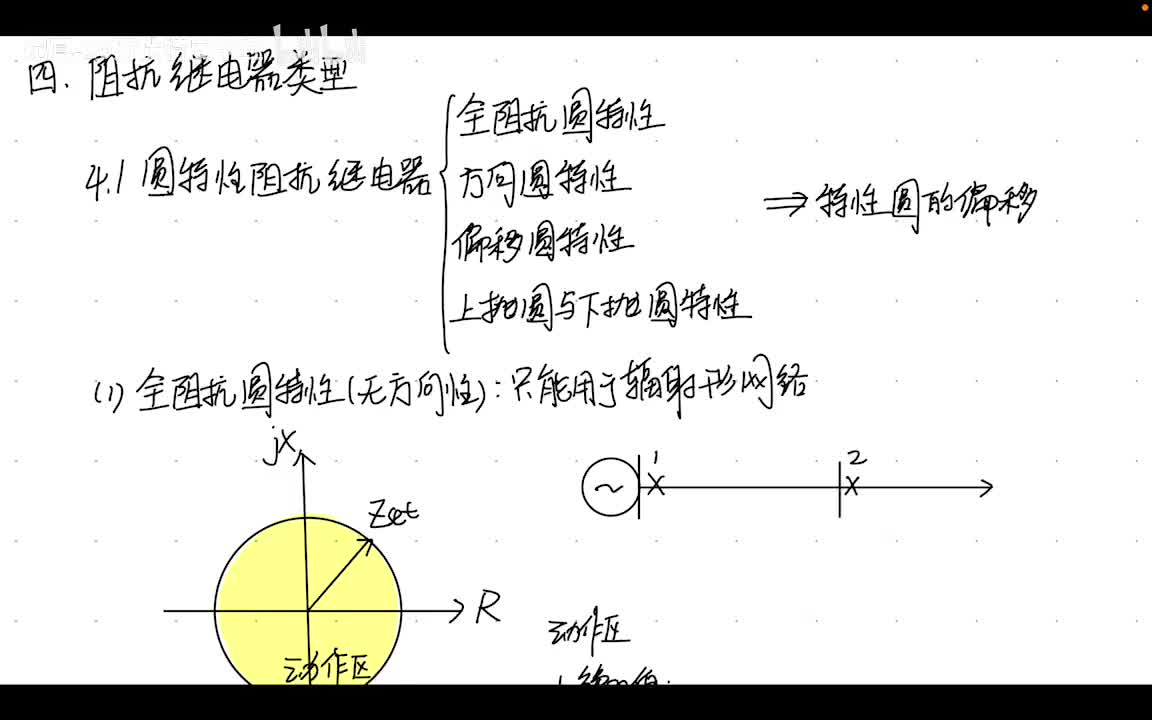 四、阻抗继电器类型
4.1 圆特性阻抗继电器
全阻抗圆特性
方向圆特性
偏移圆特性
上抛圆与下抛圆特性
⇒ 特性圆的偏移
(1) 全阻抗圆特性(无方向性):只能用于辐射形网络
jX
Zset
R
动作区
1 2
~ X X
动作区